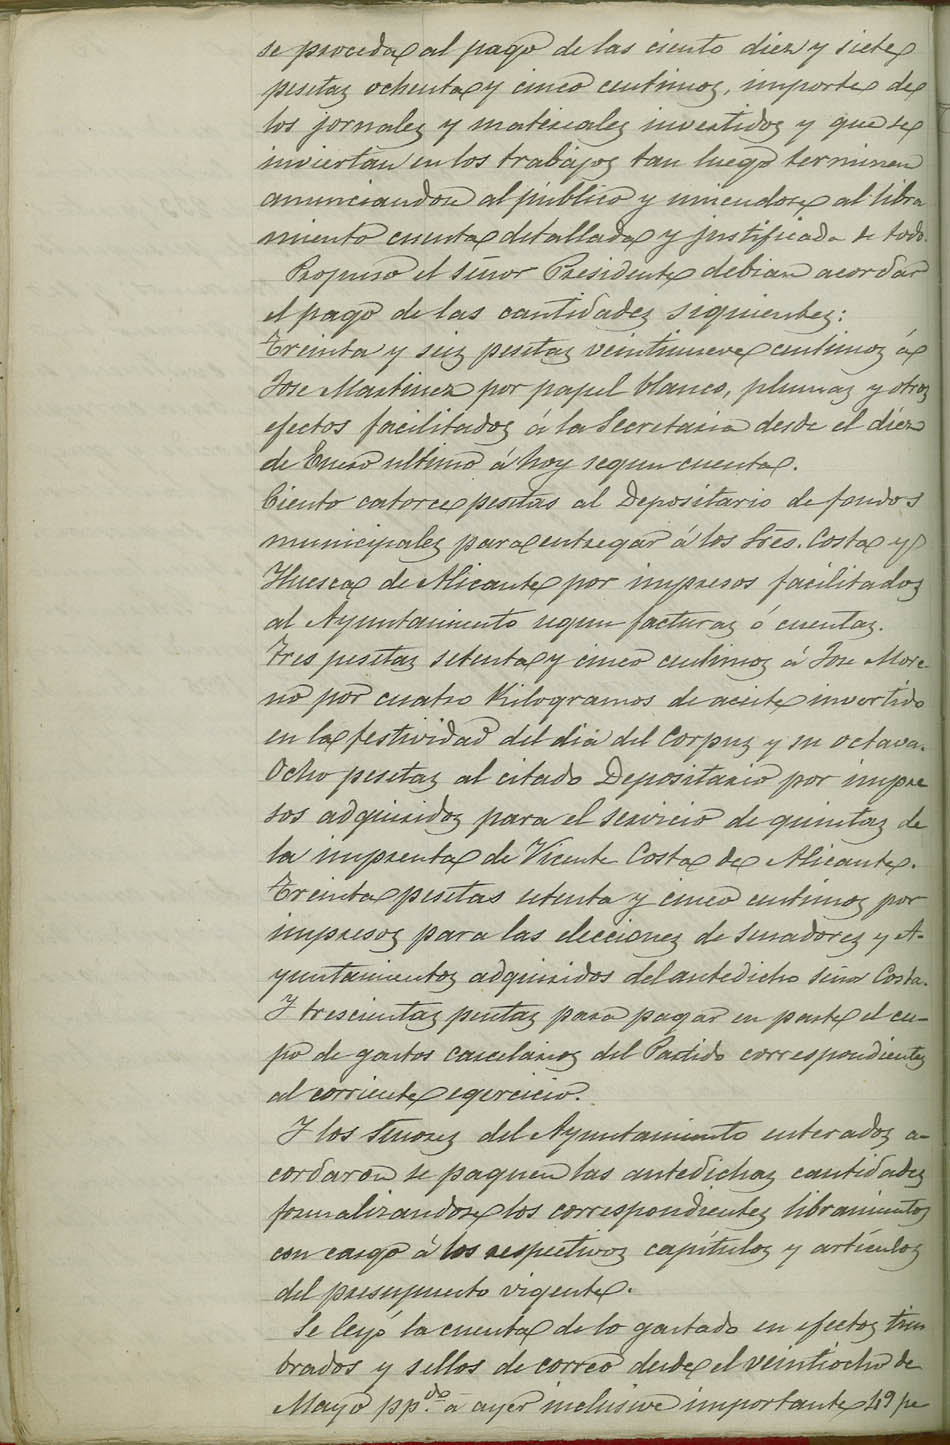 se proceda al pago de las ciento diez y siete
pesetas ochenta y cinco centimos, importe de
los jornales y materiales invertidos y que se
inviertan en los trabajos tan luego terminen
anunciandose al público y uniendose al libra
miento cuenta detallada y justificada de todo.
Propuso el Señor Presidente debian acordar
el pago de las cantidades siguientes:
Treinta y seis pesetas veintinueve centimos á
Jose Martinez por papel blanco, plumas y otros
efectos facilitados á la Secretaria desde el diez
de Enero ultimo á hoy segun cuenta.
Ciento catorce pesetas al Depositario de fondos
municipales para entregar á los Sres. Costa y
Huesca de Alicante por impresos facilitados
al Ayuntamiento segun facturas ó cuentas.
Tres pesetas setenta y cinco centimos á Jose More-
no por cuatro Kilogramos de aceite invertido
en la festividad del dia del Corpus y su octava.
Ocho pesetas al citado Depositario por impre
sos adquiridos para el servicio de quintas de
la imprenta de Vicente Costa de Alicante.
Treinta pesetas setenta y cinco centimos por
impresos para las elecciones de Senadores y A-
yuntamientos adquiridos del antedicho Señor Costa.
Y trescientas pesetas para pagar en parte el cu-
po de gastos carcelarios del Partido correspondientes
al corriente egercicio.
Y los Señores del Ayuntamiento enterados a-
cordaron se paguen las antedichas cantidades
formalizandose los correspondientes libramientos
con cargo á los respectivos capítulos y artículos
del presupuesto vigente.
Se leyó la cuenta de lo gastado en efectos tim
brados y sellos de correo desde el veintiocho de
Mayo pp.do á ayer inclusive importante 49 pe